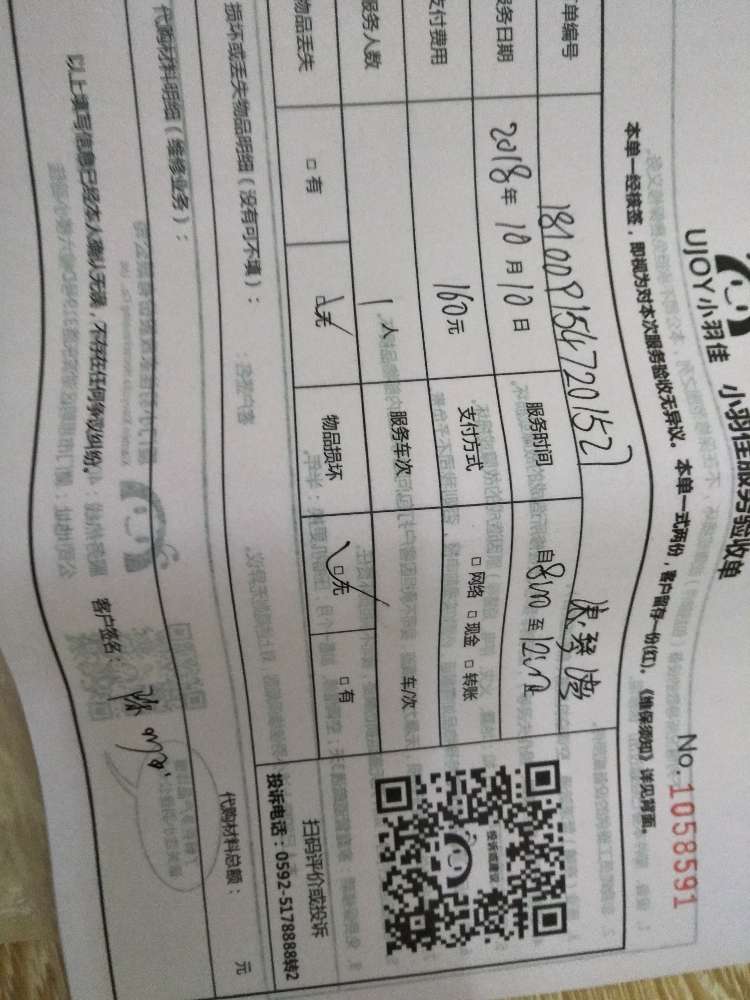 UJOY小羽佳 小羽佳服务验收单
No.1058591
本单一经核签，即视为对本次服务验收无异议。本单一式两份，客户留存一份(红)。《维保须知》详见背面。
单编号 1810091547201527
务日期 2018年10月10日 服务时间 自8:00至12:00
支付费用 160元 支付方式 □网络 □现金 □转账
服务人数 1人 服务车次 车/次
物品丢失 □有 □无 物品损坏 □无 □有
损坏或丢失物品明细（没有可不填）：
投诉或建议
扫码评价或投诉
投诉电话：0592-5178888转2
代购材料明细（维修业务）：
代购材料总额： 元
以上填写信息已经本人确认无误，不存在任何争议纠纷。
客户签名：